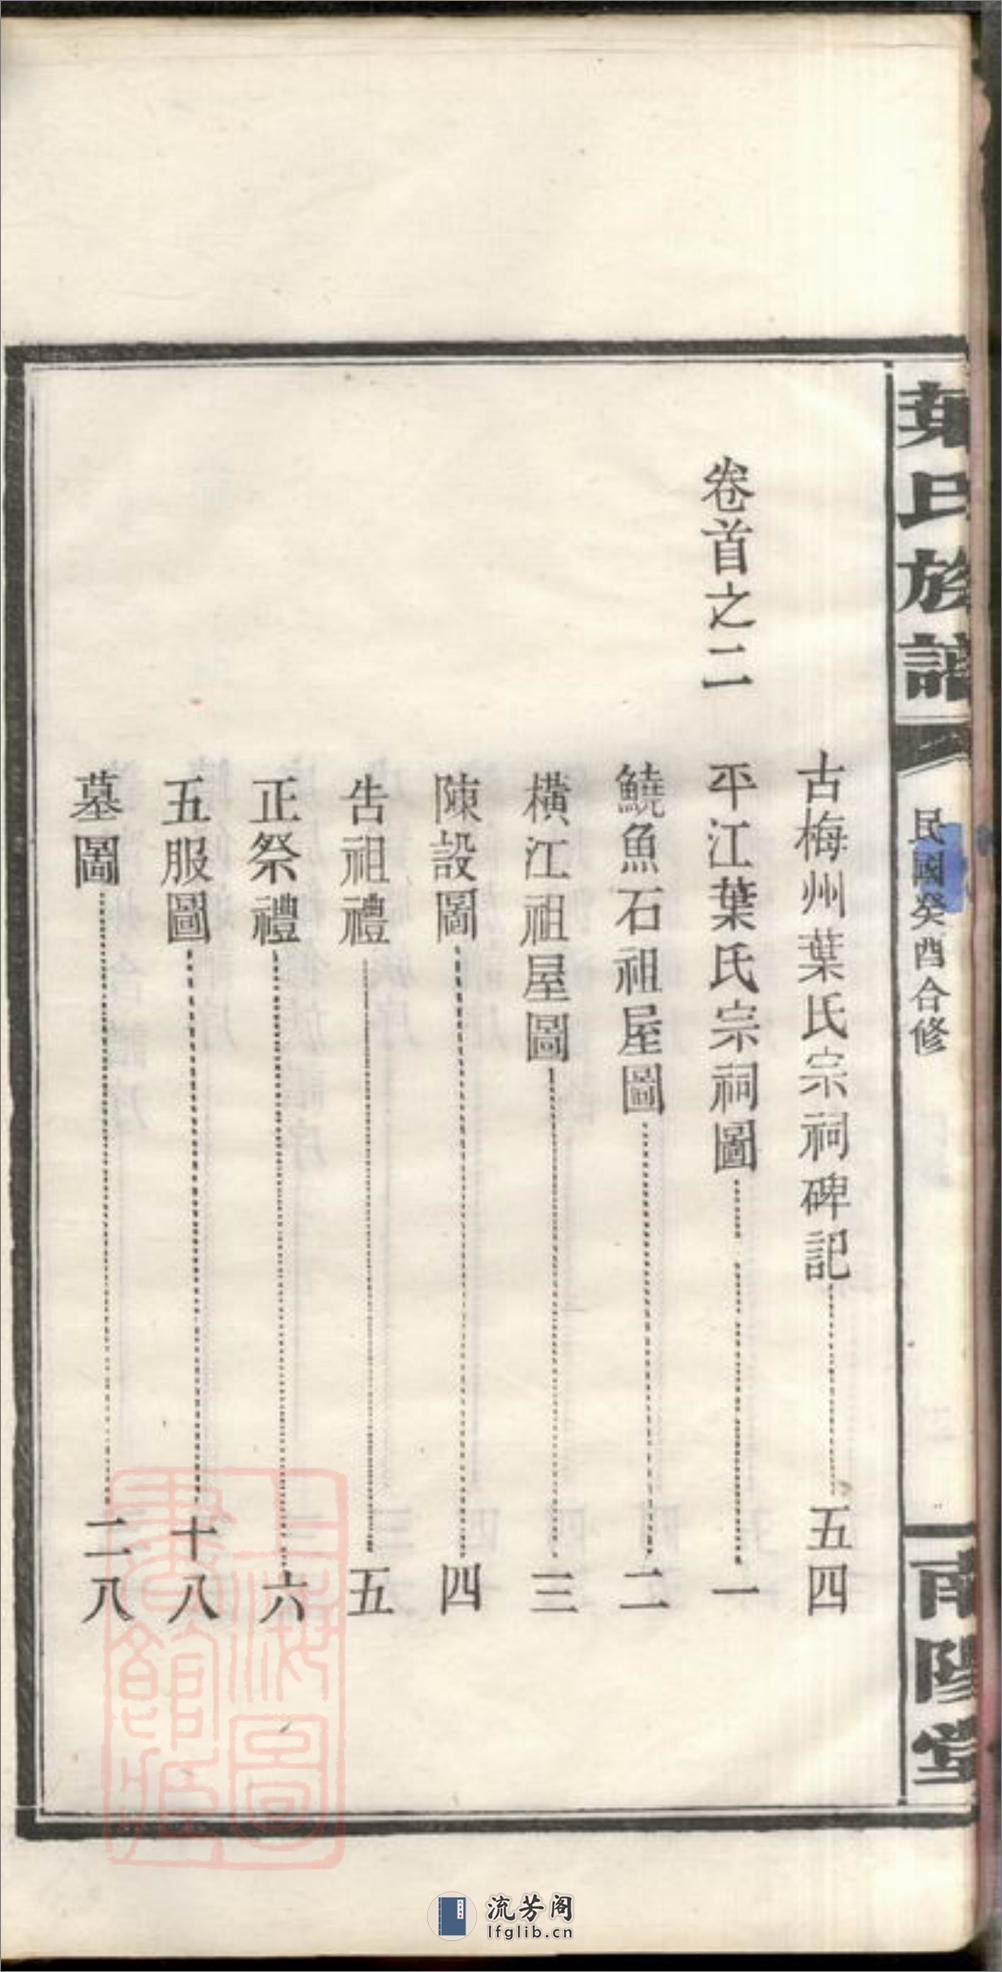 葉氏族譜
民國癸酉合修
南陽堂
古梅州葉氏宗祠碑記 五四
卷首之二
平江葉氏宗祠圖 一
鐃魚石祖屋圖 二
橫江祖屋圖 三
陳設圖 四
告祖禮 五
正祭禮 六
五服圖 十八
墓圖 二八
上海圖書館藏
流芳阁
lfglib.cn